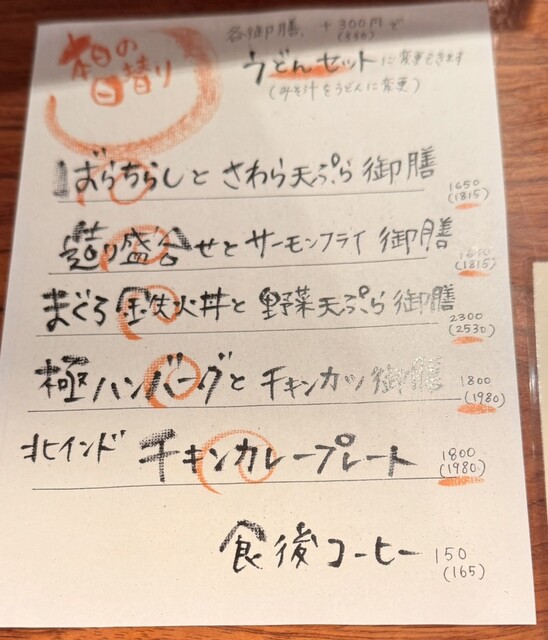 本日の
日替り
各御膳、+300円で
(330)
うどんセットに変更できます
(みそ汁をうどんに変更)
ばらちらしとさわら天ぷら御膳
1650
(1815)
造り盛合せとサーモンフライ御膳
1650
(1815)
まぐろ鉄火丼と野菜天ぷら御膳
2300
(2530)
極ハンバーグとチキンカツ御膳
1800
(1980)
北インドチキンカレープレート
1800
(1980)
食後コーヒー 150
(165)